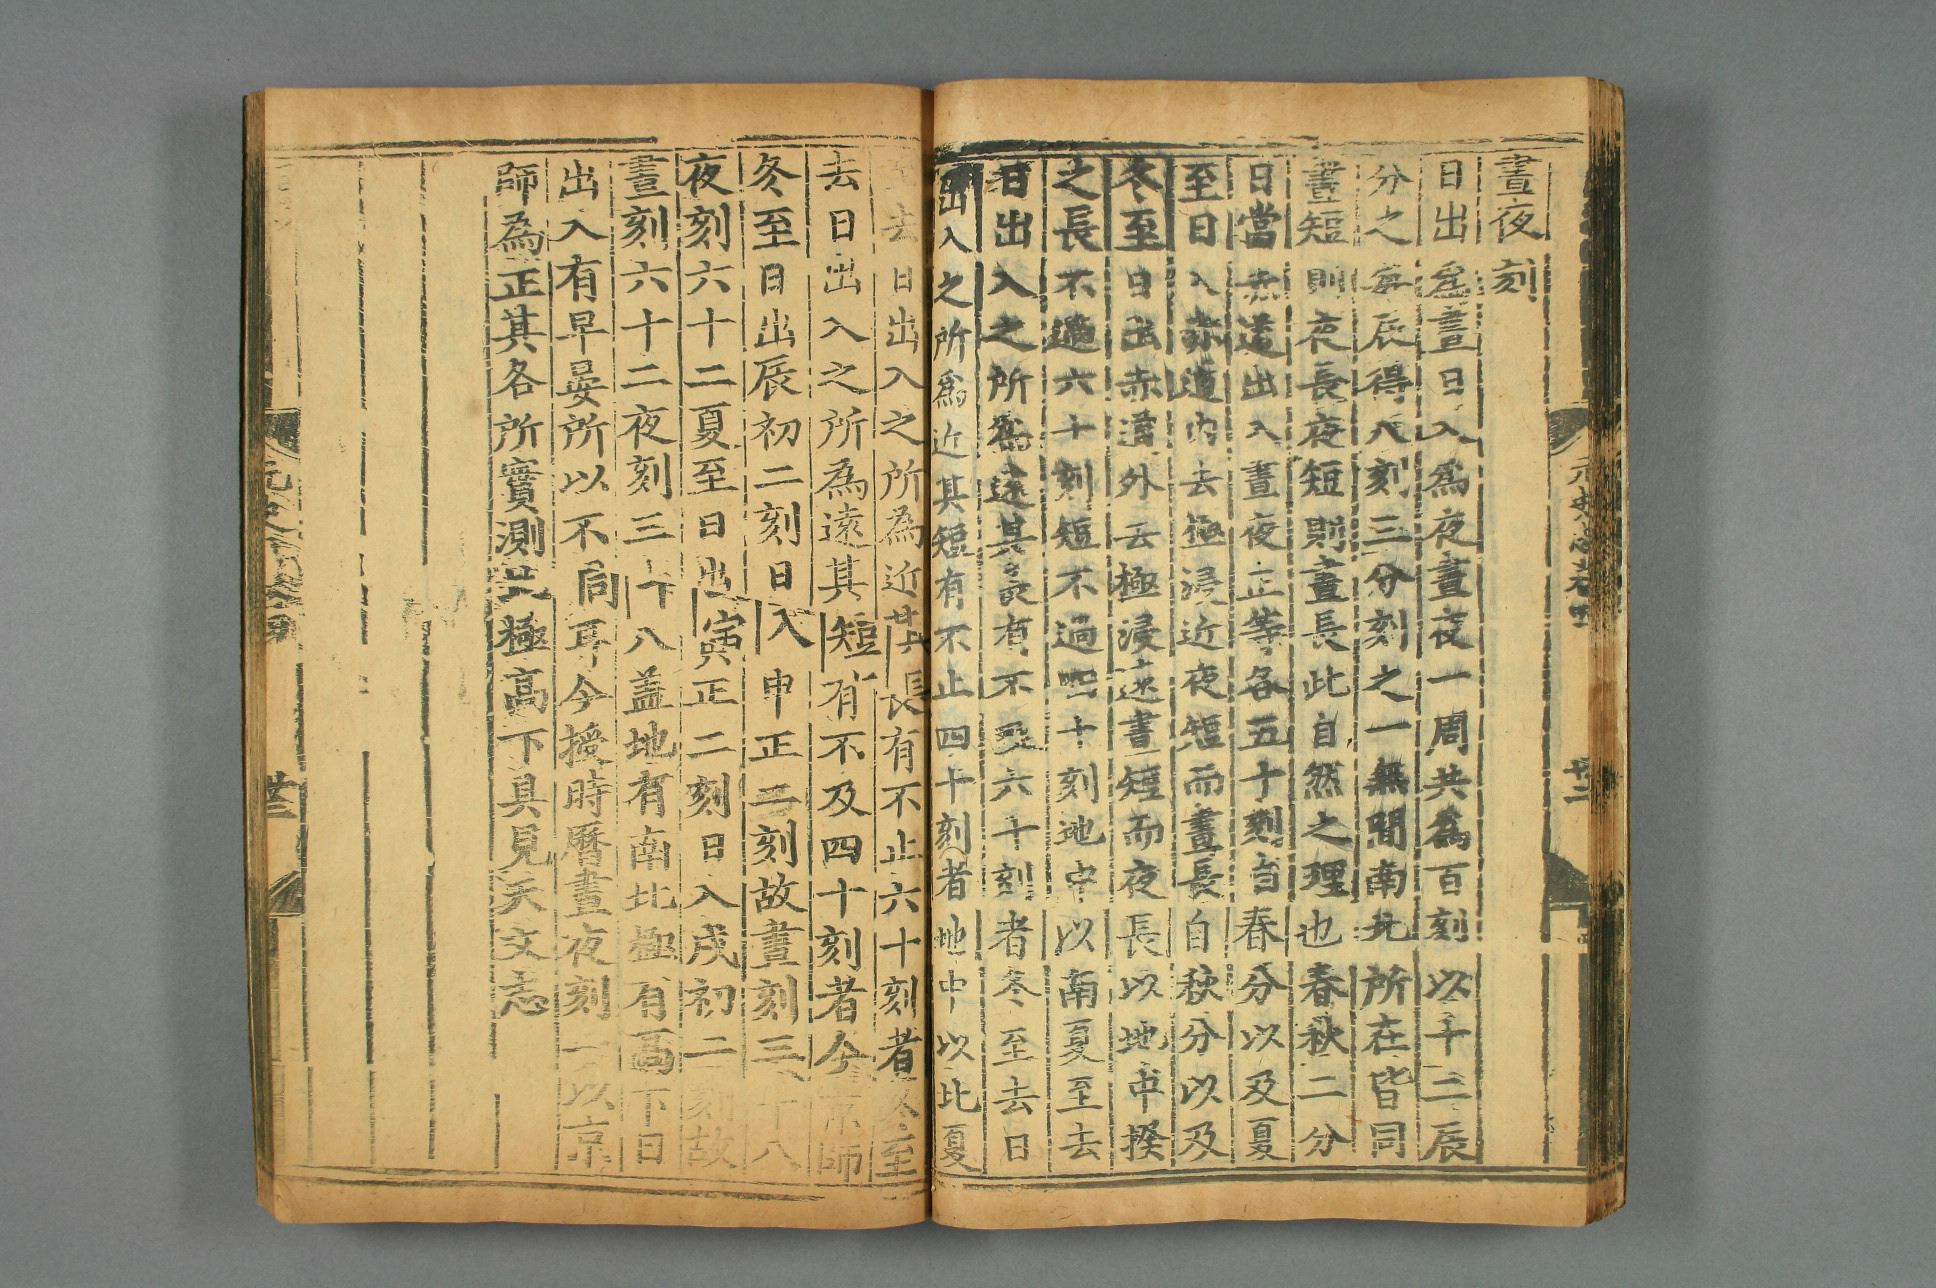 晝夜刻
日出爲晝日入爲夜晝夜一周共爲百刻以十二辰
分之每辰得八刻三分刻之一無間南北所在皆同
晝短則夜長夜短則晝長此自然之理也春秋二分
日當赤道出入晝夜正等各五十刻自春分以及夏
至日入赤道內去極浸近夜短而晝長自秋分以及
冬至日出赤道外去極浸遠晝短而夜長以地中揆
之長不過六十刻短不過四十刻地中以南夏至去
日出入之所爲遠其長有不及六十刻者冬至去日
出入之所爲近其短有不止四十刻者地中以北夏
去日出入之所為近其長有不止六十刻者冬至
去日出入之所為遠其短有不及四十刻者今京師
冬至日出辰初二刻日入申正二刻故晝刻三十八
夜刻六十二夏至日出寅正二刻日入戌初二刻故
晝刻六十二夜刻三十八蓋地有南北極有高下日
出入有早晏所以不同耳今授時曆晝夜刻一以京
師為正其各所實測北極高下具見天文志
元史志卷
廿二
廿三